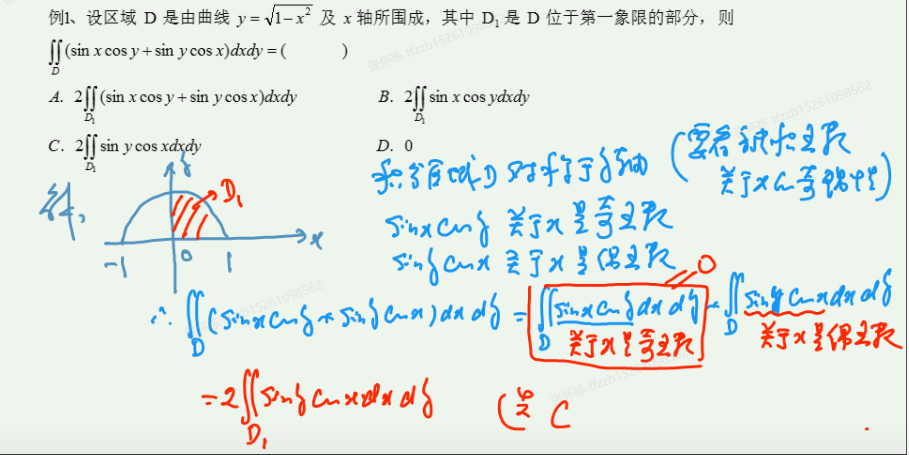 例1、设区域 D 是由曲线 y=√(1-x²) 及 x 轴所围成，其中 D₁ 是 D 位于第一象限的部分，则
∬_D (sin x cos y + sin y cos x)dxdy = (    )
A. 2∬_{D₁} (sin x cos y + sin y cos x)dxdy    B. 2∬_{D₁} sin x cos ydxdy
C. 2∬_{D₁} sin y cos xdxdy    D. 0
解、
y
D₁
x
-1 0 1
积分区域D对称于y轴 (要看被积函数
关于x的奇偶性)
sinx cosy 关于x是奇函数
siny cosx 关于x是偶函数
∴ ∬_D (sinx cosy + siny cosx)dxdy = ∬_D sinx cosy dxdy + ∬_D siny cosx dxdy
0
关于x是奇函数 关于x是偶函数
= 2∬_{D₁} siny cosx dxdy (选 C
张怀栋 tfzzb15261098562